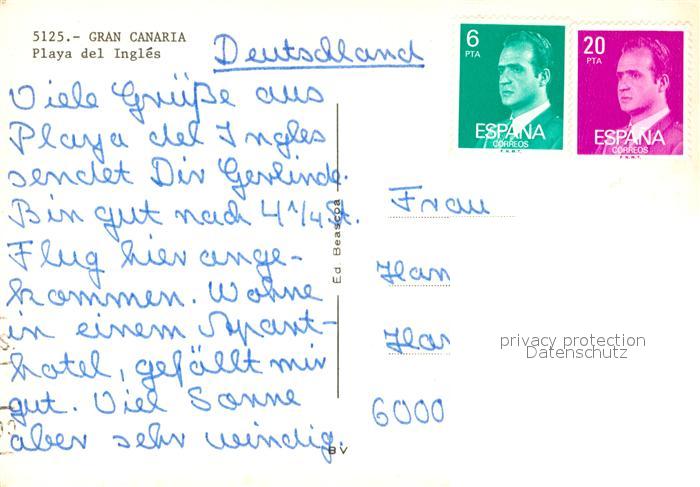 5125.- GRAN CANARIA
Playa del Inglés
Deutschland
6
PTA
ESPAÑA
CORREOS
F.N.M.T.
20
PTA
ESPAÑA
CORREOS
F.N.M.T.
Viele Grüße aus
Playa del Ingles
sendet Dir Gerlinde.
Bin gut nach 4 1/4 St.
Flug hier ange-
kommen. Wohne
in einem Apart-
hotel, gefällt mir
gut. Viel Sonne
aber sehr windig.
Ed. Beascoa
BV
Frau
Han
Har
6000
privacy protection
Datenschutz